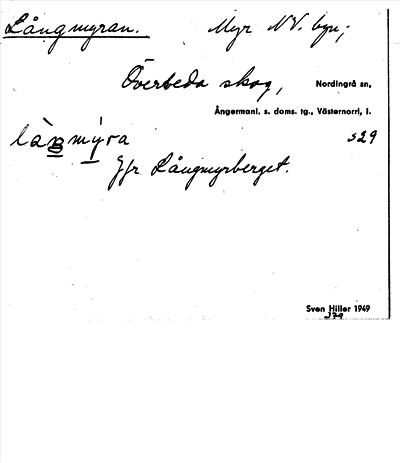 Långmyran. Myr NV. byn;
Överbeda skog, Nordingrå sn,
Ångermanl. s. doms. tg., Västernorrl. l.
làŋmỳra 529
Jfr Långmyrberget.
Sven Hiller 1949